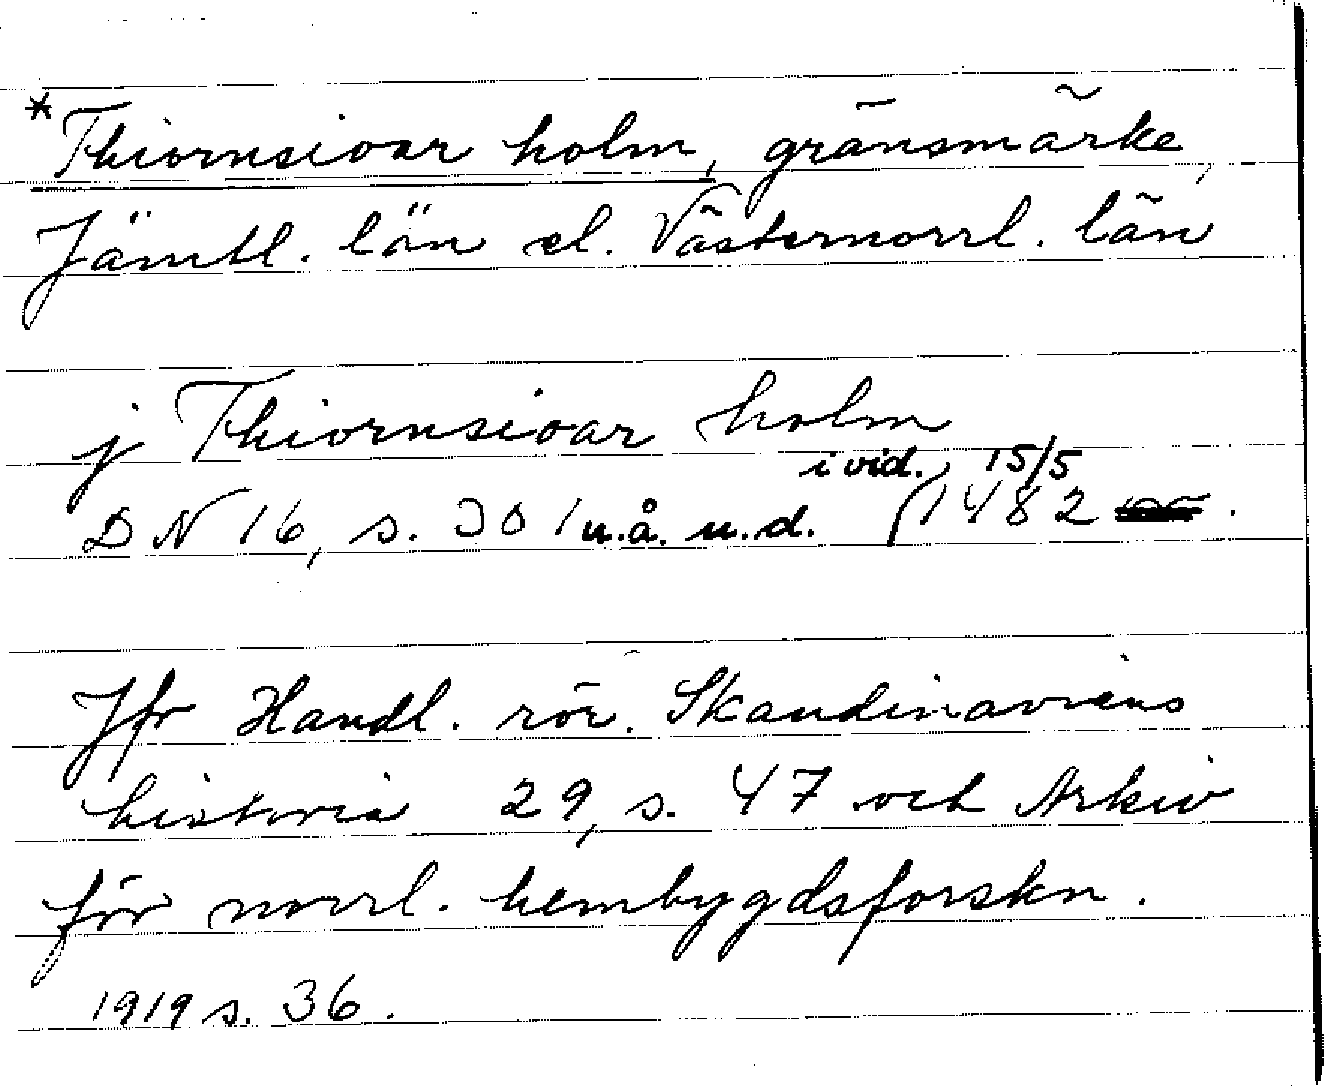 *Thiornsioar holm, gränsmärke,
Jämtl. län el. Västernorrl. län
j Thiornsioar holm
i vid. 15/5
DN 16, s. 301 u.å. u.d. 1482.
Jfr Handl. rör. Skandinaviens
historia 29, s. 47 och Arkiv
för norrl. hembygdsforskn.
1919 s. 36.